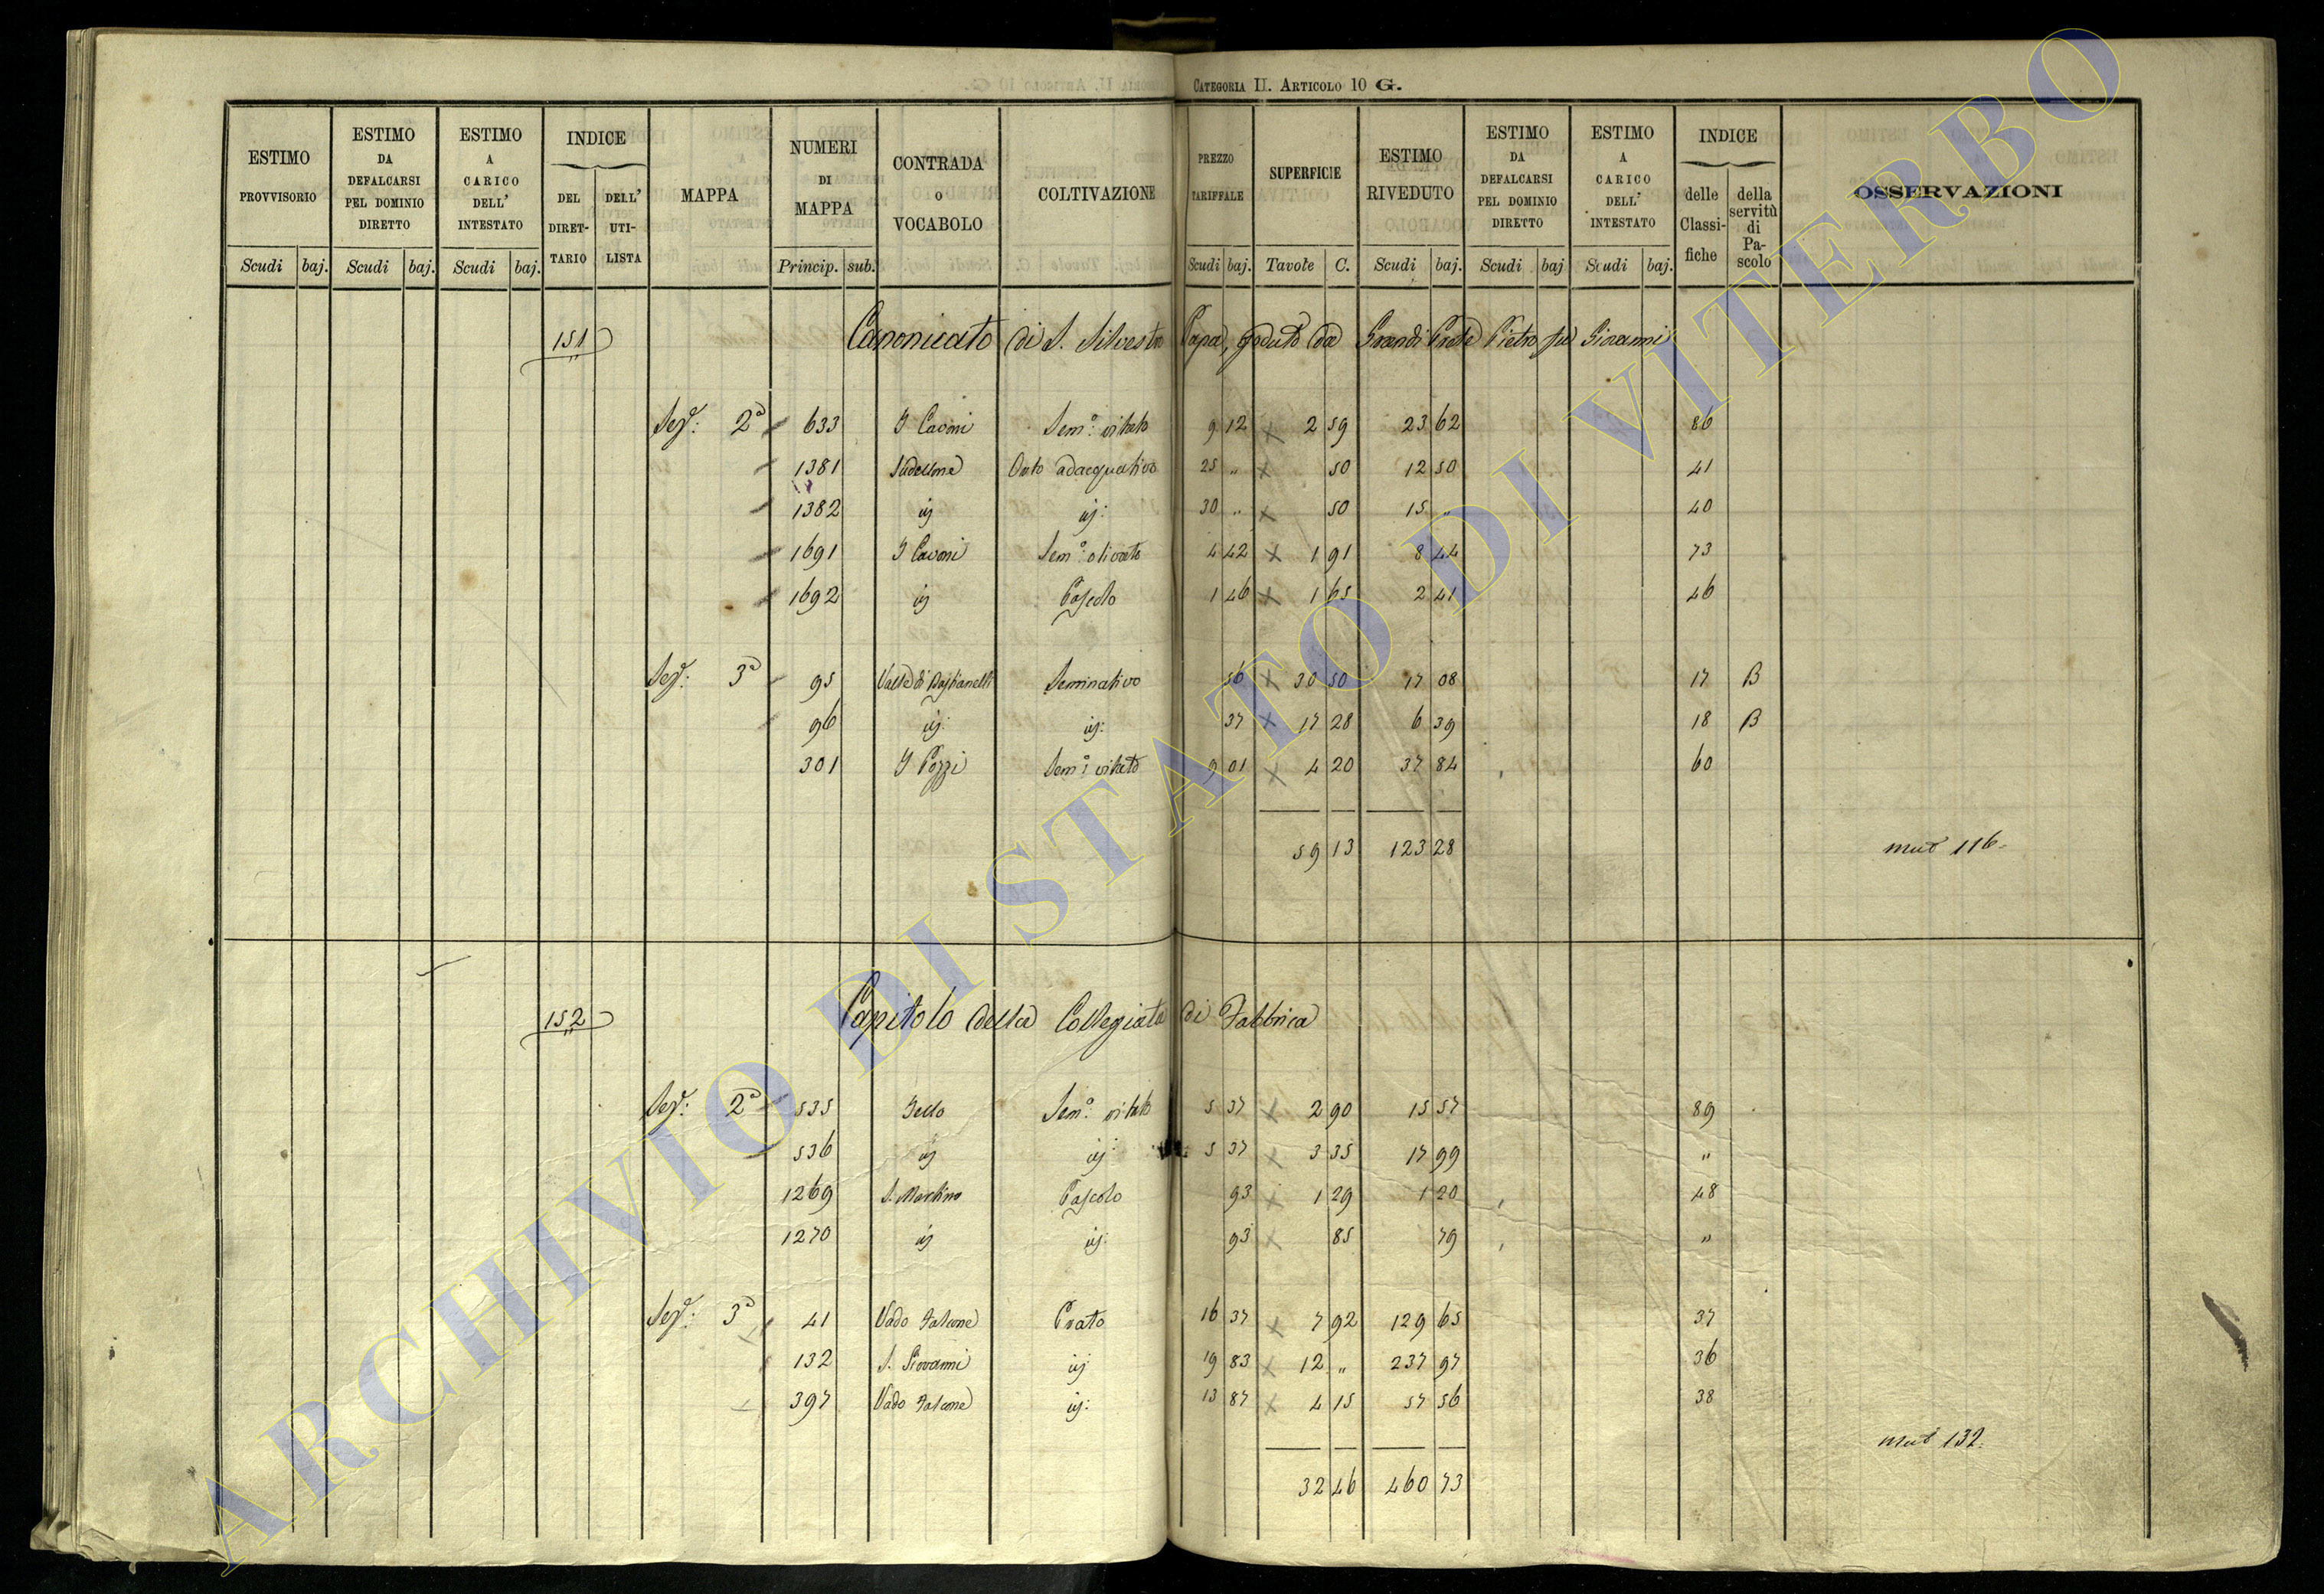 CATEGORIA II. ARTICOLO 10 G.
ESTIMO PROVVISORIO Scudi baj.
ESTIMO DA DEFALCARSI PEL DOMINIO DIRETTO Scudi baj.
ESTIMO A CARICO DELL' INTESTATO Scudi baj.
INDICE DEL DIRETTARIO DELL' UTILISTA
MAPPA
NUMERI DI MAPPA Princip. sub.
CONTRADA O VOCABOLO
COLTIVAZIONE
PREZZO TARIFFALE Scudi baj.
SUPERFICIE Tavole C.
ESTIMO RIVEDUTO Scudi baj.
ESTIMO DA DEFALCARSI PEL DOMINIO DIRETTO Scudi baj
ESTIMO A CARICO DELL' INTESTATO Scudi baj.
INDICE delle Classifiche della servitù di Pascolo
OSSERVAZIONI
151 Canonicato di S. Silvestro Papa, goduto da Grandi Prete Pietro fu Giovanni
Sez.e: 2a 633 I Cavoni Sem.o: vitato 9 12 2 59 23 62 86
1381 Orto adacquativo 25 „ 50 12 50 41
1382 id id: 30 „ 50 15 „ 40
1691 I Cavoni Sem.o: olivato 4 42 1 91 8 44 73
1692 id Pascolo 1 46 1 65 2 41 46
Sez.e: 3a 95 Valle di Bastianelli Seminativo 56 30 50 17 08 17 B
96 id: id: 37 17 28 6 39 18 B
301 I Pozzi Sem.o: vitato 9 01 4 20 37 84 60
59 13 123 28
mut 116
152 Capitolo della Collegiata di Fabbrica
Sez.e: 2a 535 Sem.o: vitato 5 37 2 90 15 57 89
536 id id: 5 37 3 35 17 99 „
1269 S. Martino Pascolo 93 1 29 1 20 48
1270 id id: 93 85 79 „
Sez.e: 3a 41 Vado Falcone Prato 16 37 7 92 129 65 37
132 S. Giovanni id 19 83 12 „ 237 97 36
397 Vado Falcone id: 13 87 4 15 57 56 38
mut 132.
32 46 460 73
ARCHIVIO DI STATO DI VITERBO